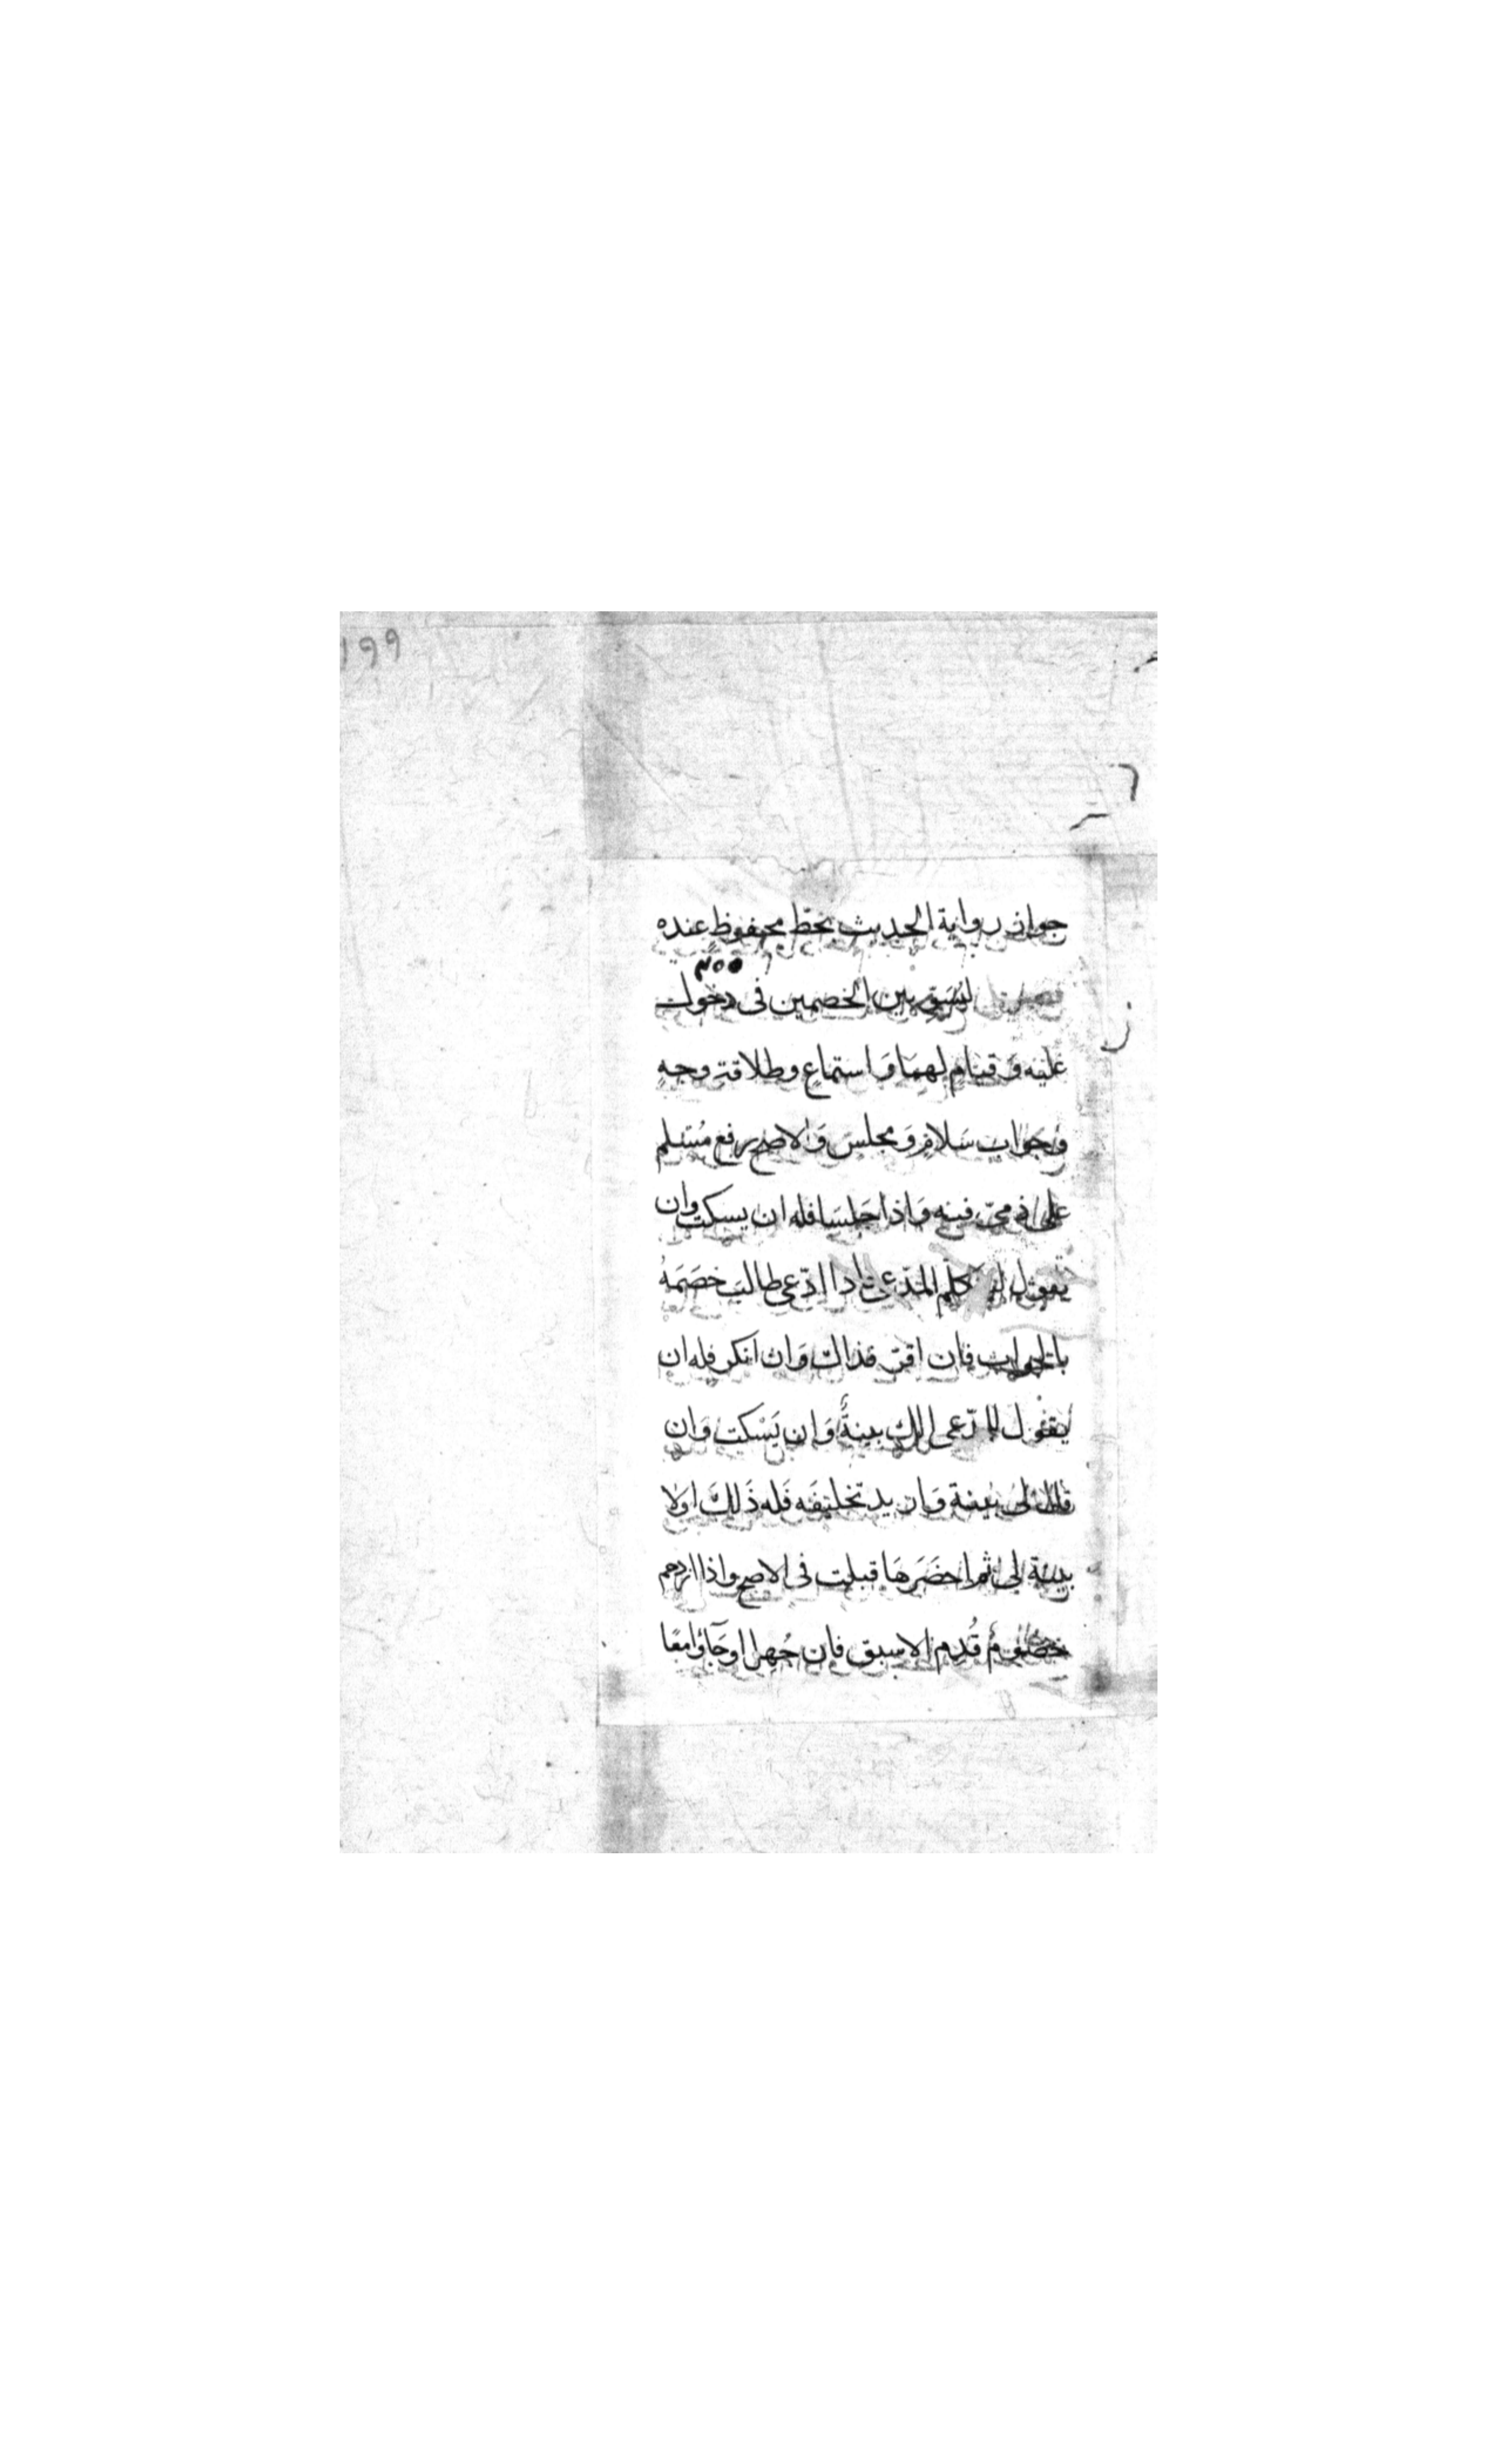 ١٩٩
جواز رواية الحديث بخط محفوظ عنده
فصل ليسوّ بين الخصمين فى دخول
عليه وَقيام لهمَا وَاستماعٍ وطلاقة وجهٍ
وجَوَاب سَلامٍ وَمجلسَ وَالاصح رفع مُسْلم
على ذمىّ فيه وَاذا جَلسَا فله ان يسكت وان
يقول ليتكلّم المدّعى فاذا ادّعى طالبَ خصَمَهُ
بالجواب فان اقرّ فذاك وَان انكر فله ان
يقول للمدّعى الك بينةٌ وَان يَسْكت وَان
قال لى بينة وَاريد تحليفَه فَله ذَلكَ اولا
بينة لى ثم احضَرهَا قبلت فى الاصح واذا ازدحم
خصُوم قُدِم الاسبق فان جُهل اوجَآؤامعًا